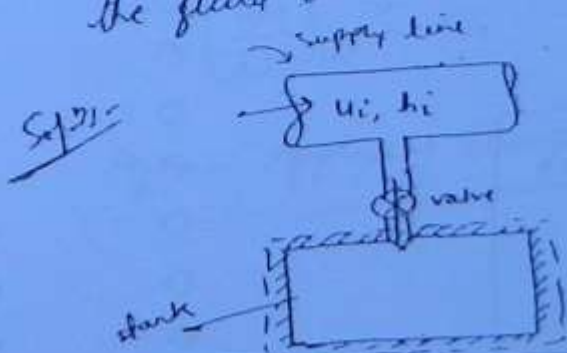 the
supply line
Soln:-
ui, hi
valve